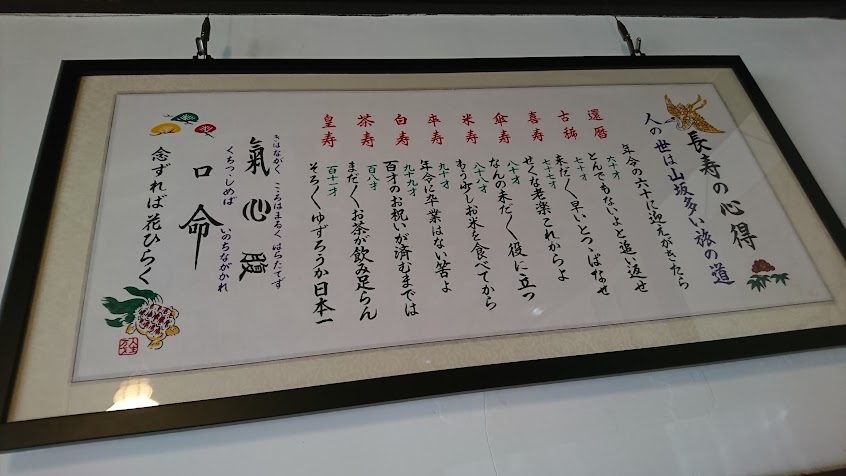 長寿の心得
人の世は山坂多い旅の道
年令の六十に迎えがきたら
還暦 六十才 とんでもないよと追い返せ
古稀 七十才 まだ〳〵早いとつっぱなせ
喜寿 七十七才 せくな老楽これからよ
傘寿 八十才 なんのまだ〳〵役に立つ
米寿 八十八才 もう少しお米を食べてから
卒寿 九十才 年令に卒業はない筈よ
白寿 九十九才 百才のお祝いが済むまでは
茶寿 百八才 まだ〳〵お茶が飲み足らん
皇寿 百十一才 そろ〳〵ゆずろうか日本一
きはながく こころはまるく はらたてず
氣心腹
くちつゝしめば いのちながかれ
口命
念ずれば花ひらく